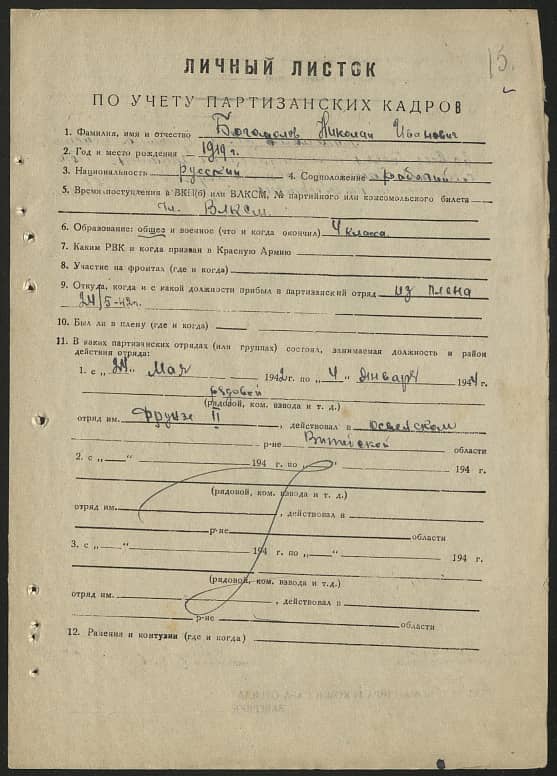 15.
ЛИЧНЫЙ ЛИСТОК
ПО УЧЕТУ ПАРТИЗАНСКИХ КАДРОВ
1. Фамилия, имя и отчество Николай Иванович
2. Год и место рождения 1919 г.
3. Национальность русский 4. Соцположение рабочий
5. Время поступления в ВКП(б) или ВЛКСМ, № партийного или комсомольского билета
Чл. ВЛКСМ
6. Образование: общее и военное (что и когда окончил) 4 класса
7. Каким РВК и когда призван в Красную Армию
8. Участие на фронтах (где и когда)
9. Откуда, когда и с какой должности прибыл в партизанский отряд из плена
24/5-42г.
10. Был ли в плену (где и когда)
11. В каких партизанских отрядах (или группах) состоял, занимаемая должность и район
действия отряда:
1. с „24" Мая 1942г. по „4" января 1944 г.
рядовой
(рядовой, ком. взвода и т. д.)
отряд им. Фрунзе II, действовал в Освейском
р-не Витебской области
2. с „ " 194 г. по „ " 194 г.
(рядовой, ком. взвода и т. д.)
отряд им. , действовал в
р-не области
3. с „ " 194 г. по „ " 194 г.
(рядовой, ком. взвода и т.д.)
отряд им. , действовал в
р-не области
12. Ранения и контузии (где и когда)